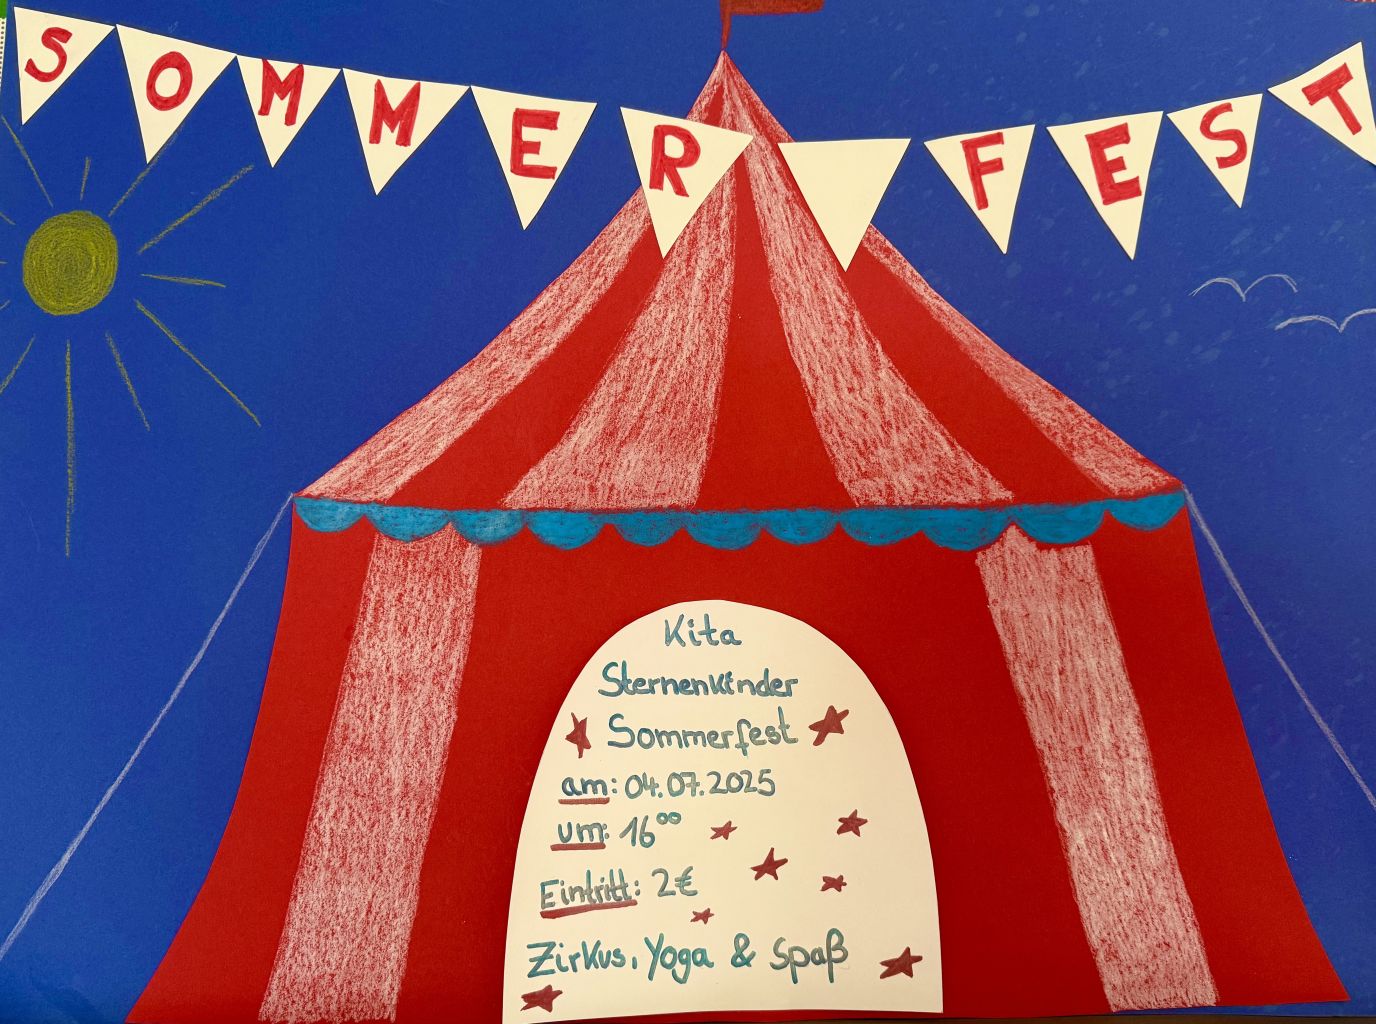 SOMMER FEST
Kita
Sternenkinder
Sommerfest
am: 04.07.2025
um: 16⁰⁰
Eintritt: 2€
Zirkus, Yoga & Spaß